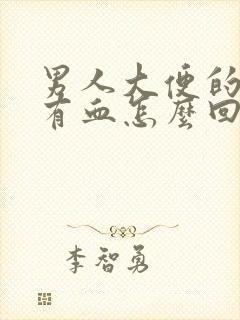 男人大便的
有血怎麼回
李智勇